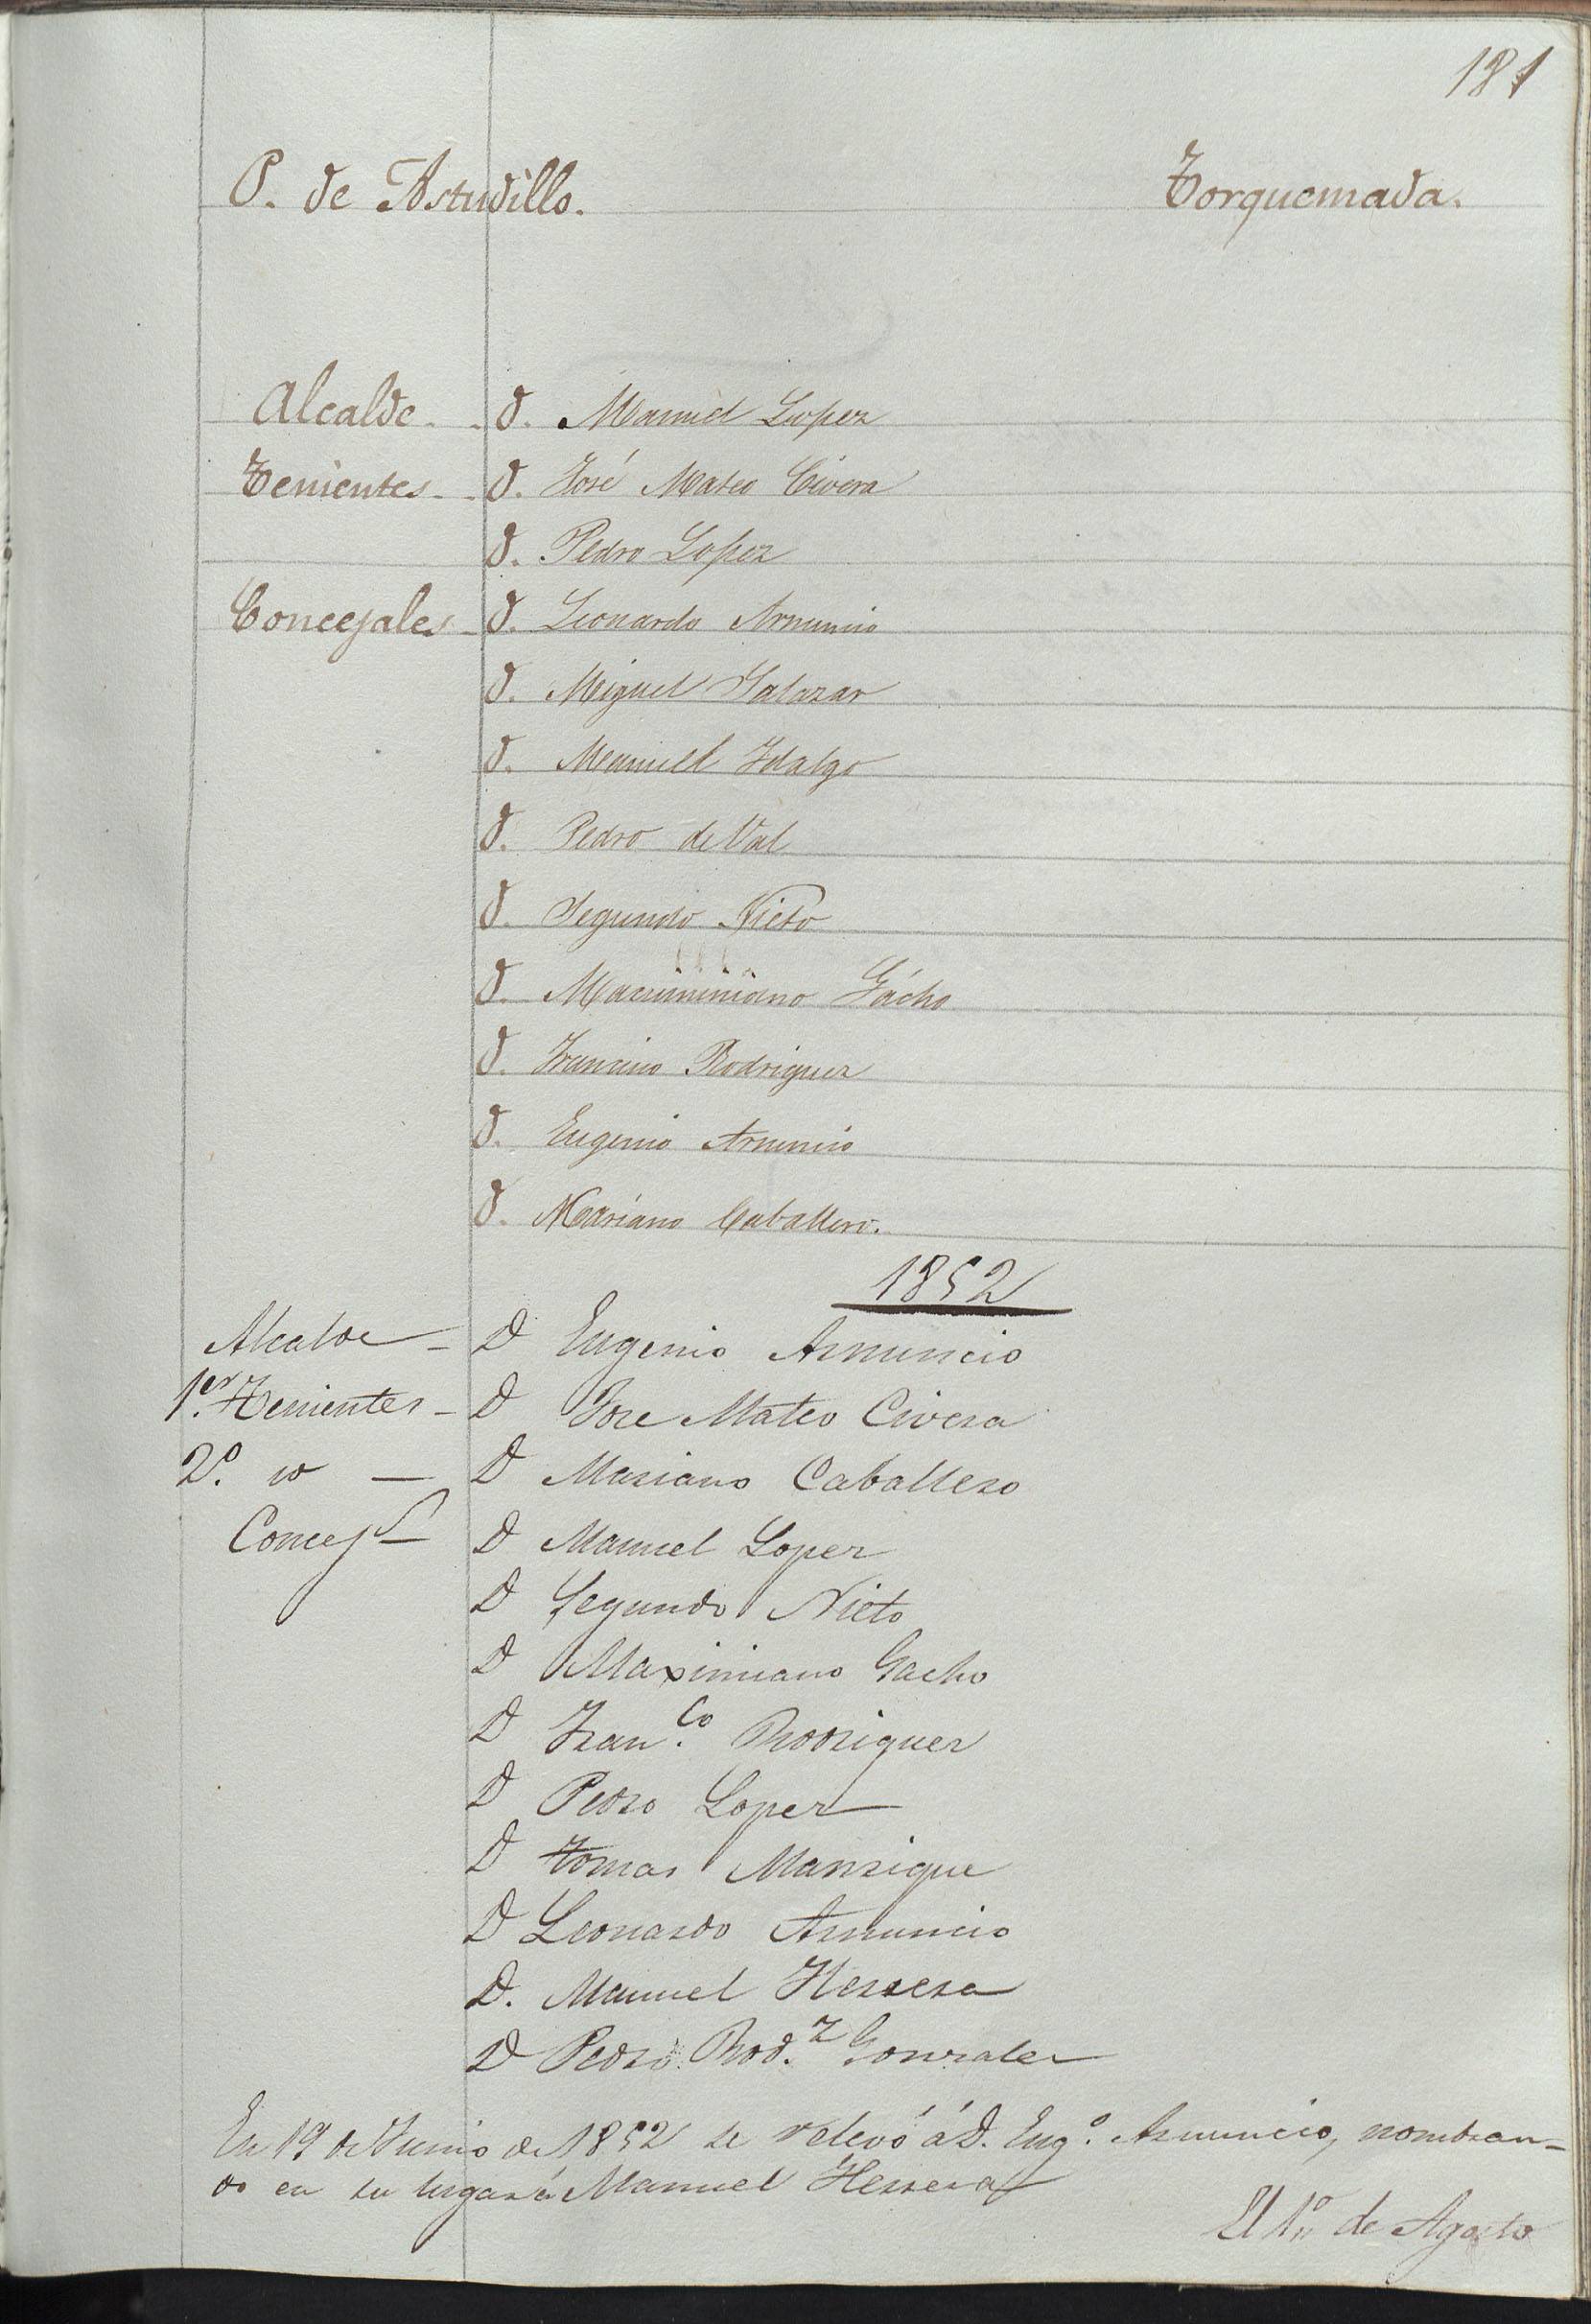 181
P. de Astudillo. Torquemada.
Alcalde - - D. Manuel Lopez
Tenientes - - D. José Mateo Civera
D. Pedro Lopez
Concejales - D. Leonardo Arnuncio
D. Miguel Salazar
D. Manuel Idalgo
D. Pedro de Val
D. Segundo Nieto
D. Macsiminiano Gácho
D. Francisco Rodriguez
D. Eugenio Arnuncio
D. Mariano Caballero.
1852
Alcalde - D Eugenio Arnuncio
1er. Tenientes - D Jose Mateo Civera
2º. id — D Mariano Caballero
Concejs — D Manuel Lopez
D Segundo Nieto
D Maximiano Gacho
D Fran.co Rodriguez
D Pedro Lopez
D Tomas Manrique
D Leonardo Arnuncio
D. Manuel Herrera
D Pedro Rod.z Gonzalez
En 19 de Junio de 1852 se relevó á D. Eug.º Arnuncio, nombran-
do en su lugar á Manuel Herrera
El 1º de Agosto